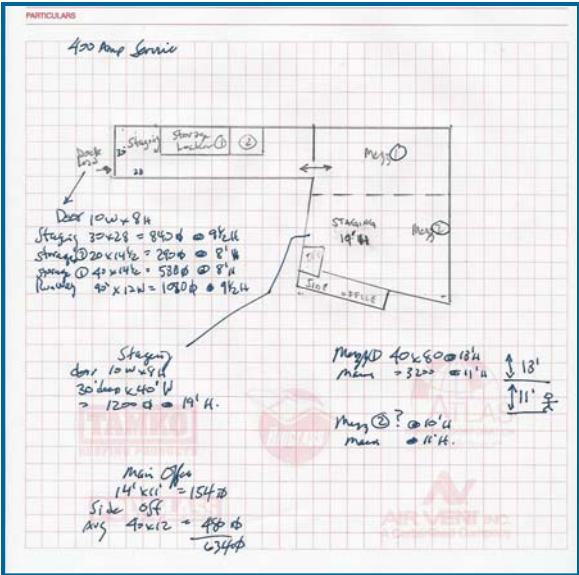 PARTICULARS
400 Amp Service
Dock
Load
30
Staging
28
Storage
Locker ①
②
Mezz ①
STAGING
19' H
Mezz ②
OFF
SIDE OFFICE
Door 10w x 8H
Staging 30x28 = 840 ϕ @ 9½H
storage ② 20 x 14½ = 290 ϕ @ 8'H
storage ① 40 x 14½ = 580 ϕ @ 8'H
90' x 12W = 1080 ϕ @ 9½H
Staging
door 10w x 8H
30'deep x 40' W
= 1200 ϕ @ 19' H.
Mezz ① 40 x 80 @ 13'H
Main = 3200 @ 11'H
13'
11'
Mezz ② ? @ 10'H
Main @ 11'H.
Main Office
14' x 11' = 154 ϕ
Side Off
Avg 40 x 12 = 480 ϕ
634 ϕ
TAMKO
AIR VENT INC.